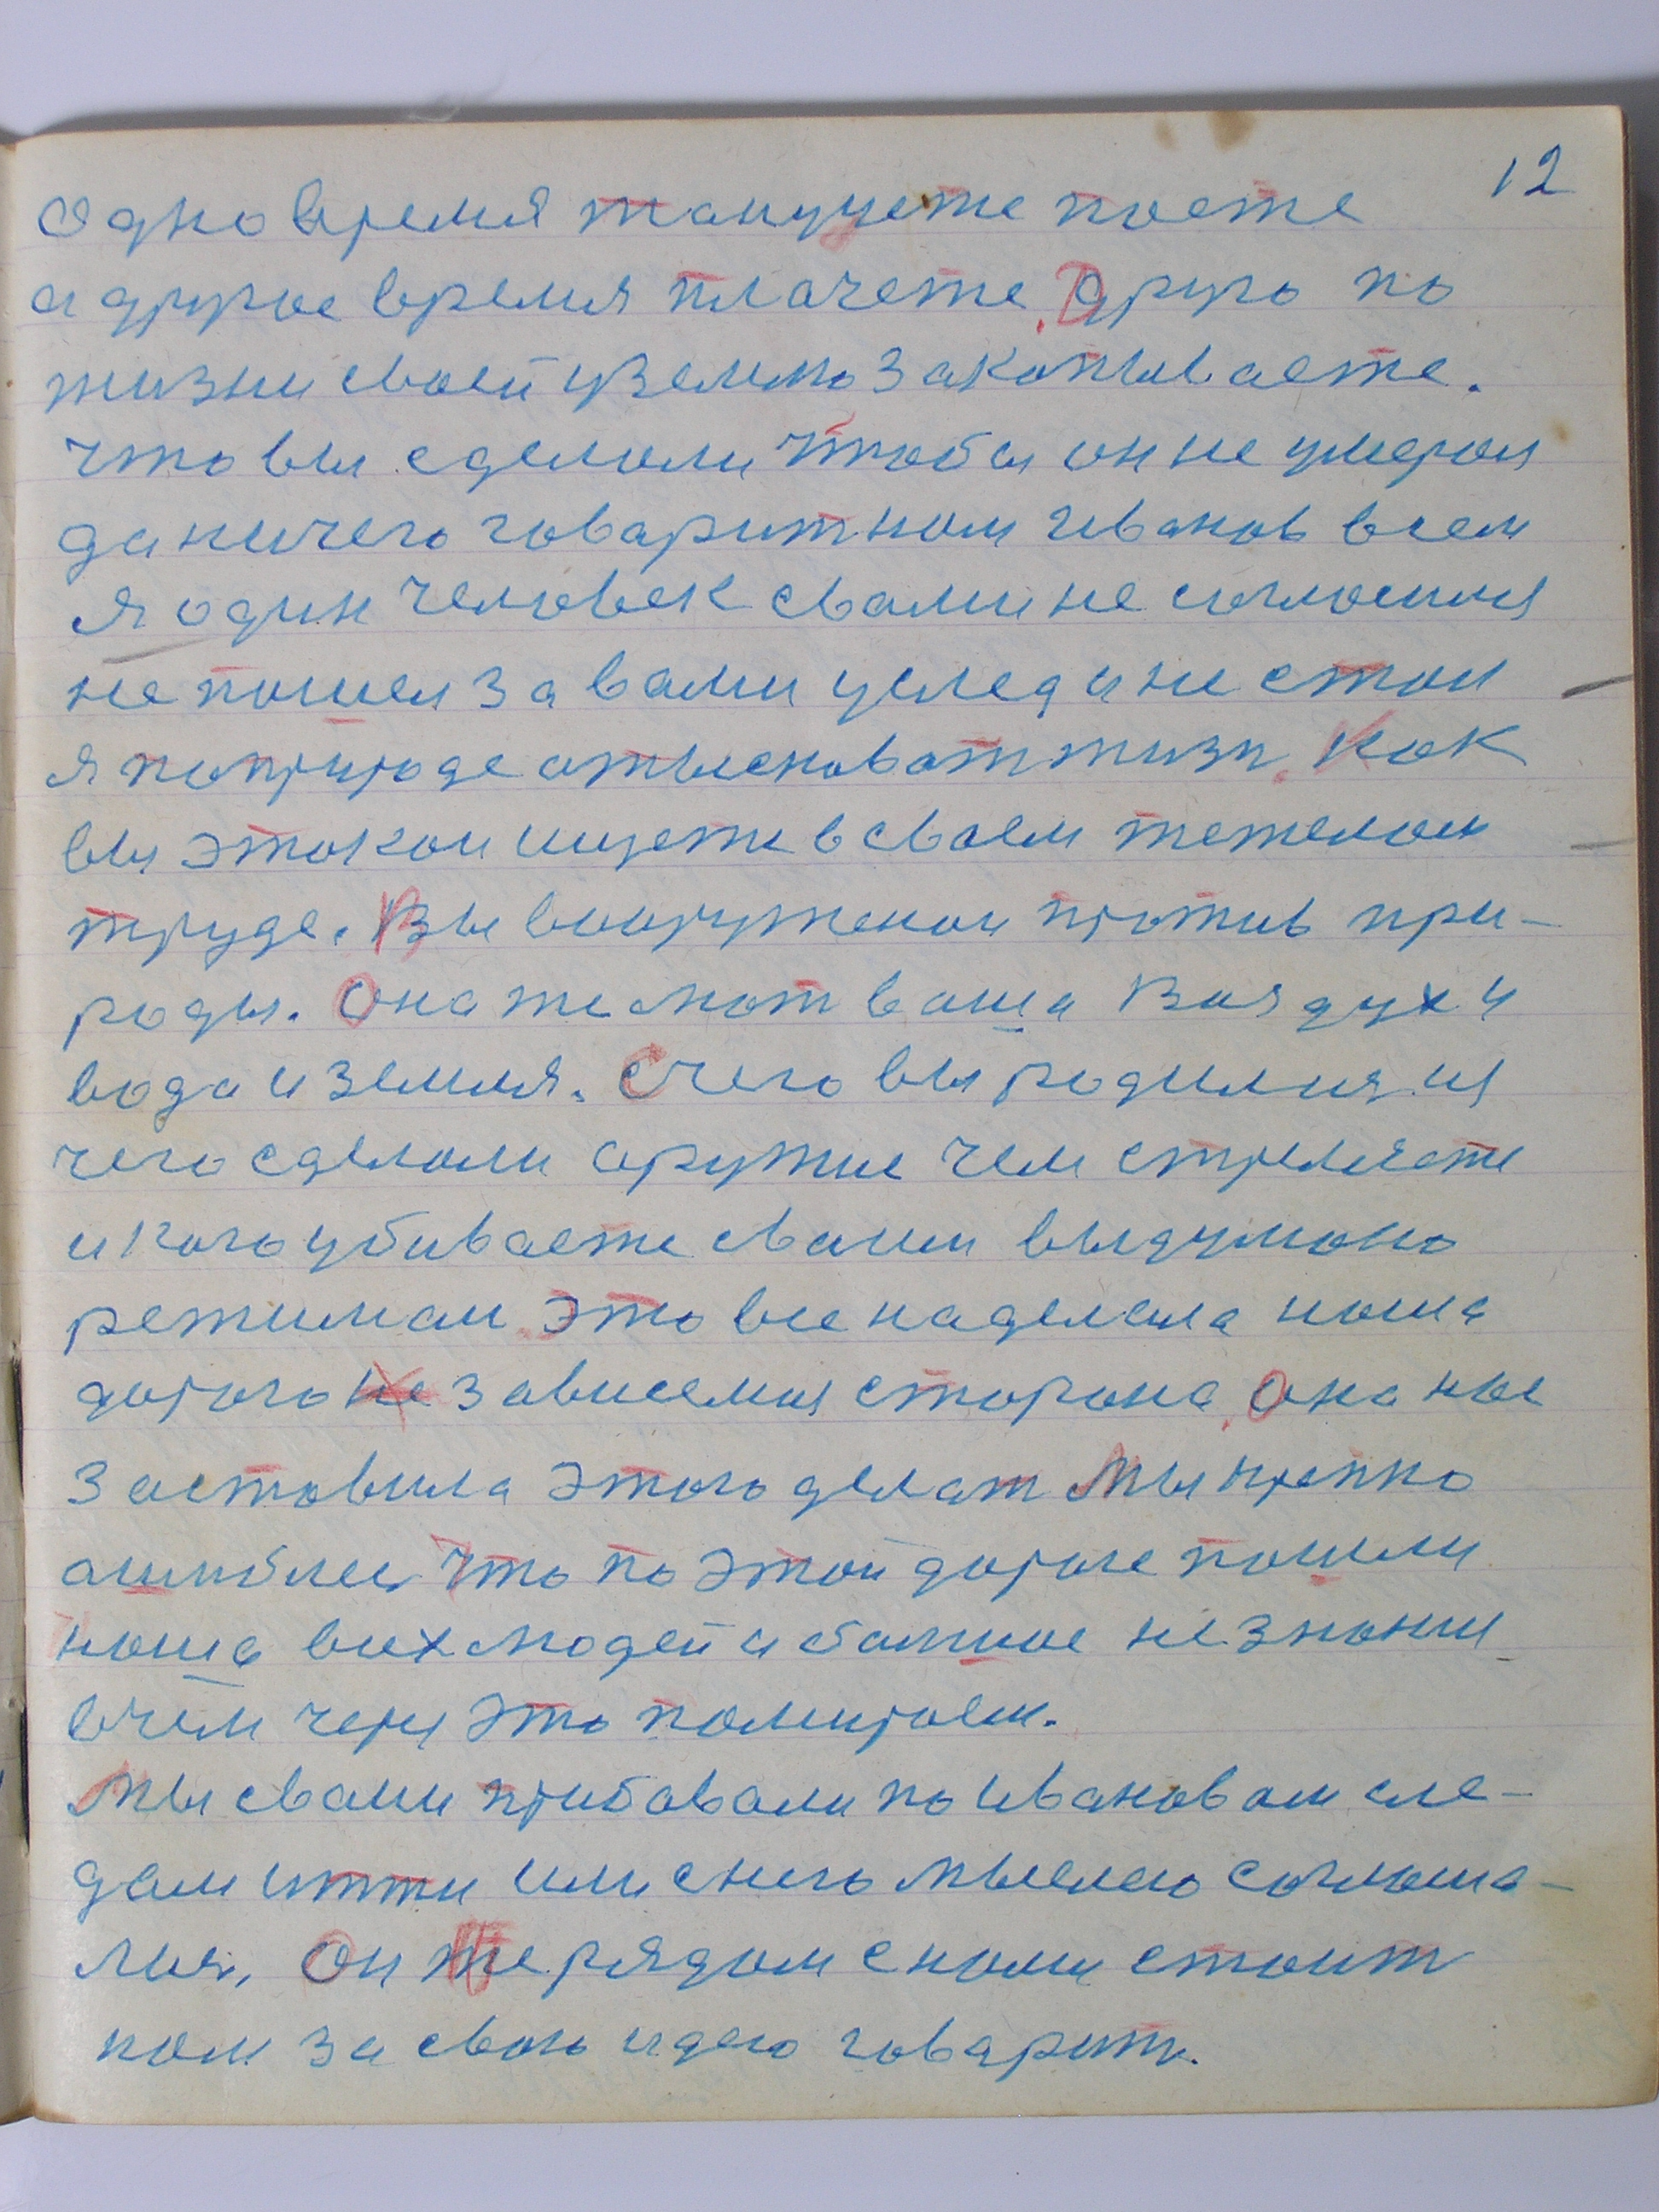 12
Одно время танцуете поете
а другое время плачете. Другого по
жизни своей уземлю закапываете.
что вы сделали чтобы он не умерал
да ничего говарит нам Иванов всем
я один человек свами не сагласился
не пошел за вами услед а не стал
я поприроде атыскават жизн. Как
вы этакои ищете в своем тежелом
труде. Вы вооружонои против при-
роды. Она же мат ваша Воздух и
вода и земля. С чего вы родились из
чего сделали оружие чем стреляете
и кого убиваете своим выдумано
режимам. Это все наделала наша
дорого не зависемая сторона. Она нас
заставила этого делат Мы крепко
ашиблис что по этой дороге пошли
наша всех людей а болшое незнании
вчем через это помираем.
Мы свами прибавали по Ивановам сле-
дам итти или снего мыслею саглаша-
лися, Он же рядом снами стоит
нам за свою идею говарит.